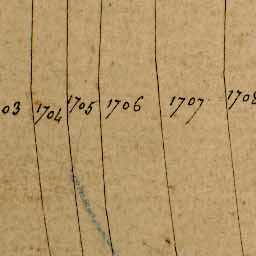 03 1704 1705 1706 1707 1708